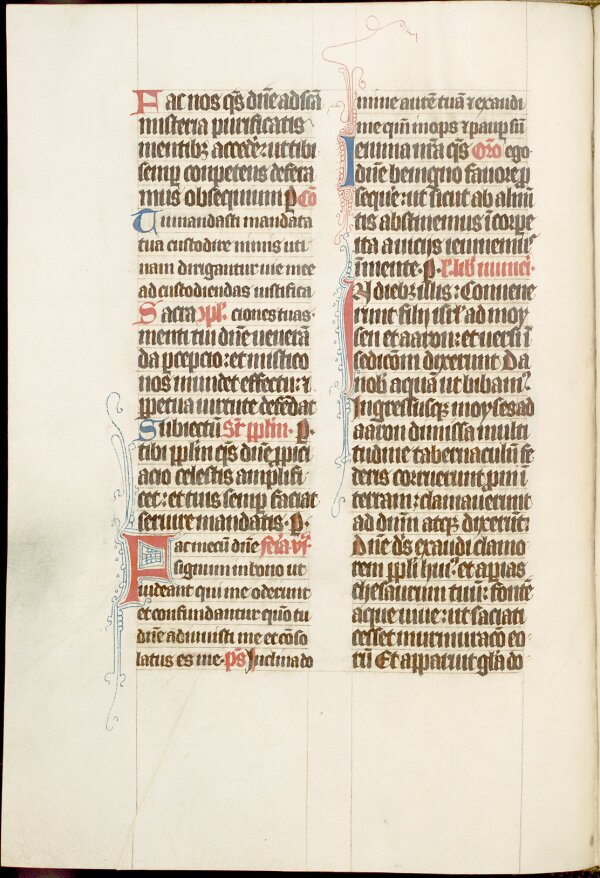 Fac nos qs dne ad scā
misteria purificatis
mentibz accede᷑: ut tibi
semp competens defera
mus obsequium p Cō
Tu mandasti mandata
tua custodire nimis uti
nam dirigantur uie mee
ad custodiendas iustifica
Sacra xpl. ciones tuas·
menti tui dne ueuerā
da pcepcio: et mistico
nos mundet effectu: ⁊
ppetua uirtute defēdat
Subiectū Sr pplm· P·
tibi pplm qs dne ppici
acio celestis amplifi
cet: et tuis semp faciat
seruire mandatis· P·
Fac mecū dne feria vj·
signum in bono ut
uideant qui me oderunt
et confundantur quō tu
dne adiuuisti me et cōso
latus es me· ps Inclina do
mine aurē tuā ⁊ exaudi
me qm̄ inops ⁊ paup sū
Ieiunia nrā qs Orō ego
dne benigno fauore p
seque: ut sicut ab alim̄
tis abstinemus ī corpe
ita a uicijs ieiunem9
ī mente· p· l. lib numei·
In diebz illis: Conuene
runt filij isrl ad moy
sen et aaron: et uersi ī
sedicōm dixerunt Da
nob aquā ut bibam9.
Ingressusqz moyses ad
aaron dimissa multi
tudine tabernaculū fe
deris corruerunt pni ī
terram: clamauerunt
ad dnm atqz dixerūt:
Dne ds exaudi clamo
rem ppli hui9 et apias
thesaurum tuū: fontē
aque uiue: ut saciati
cesset murmuracō eo
rū Et apparuit glā do